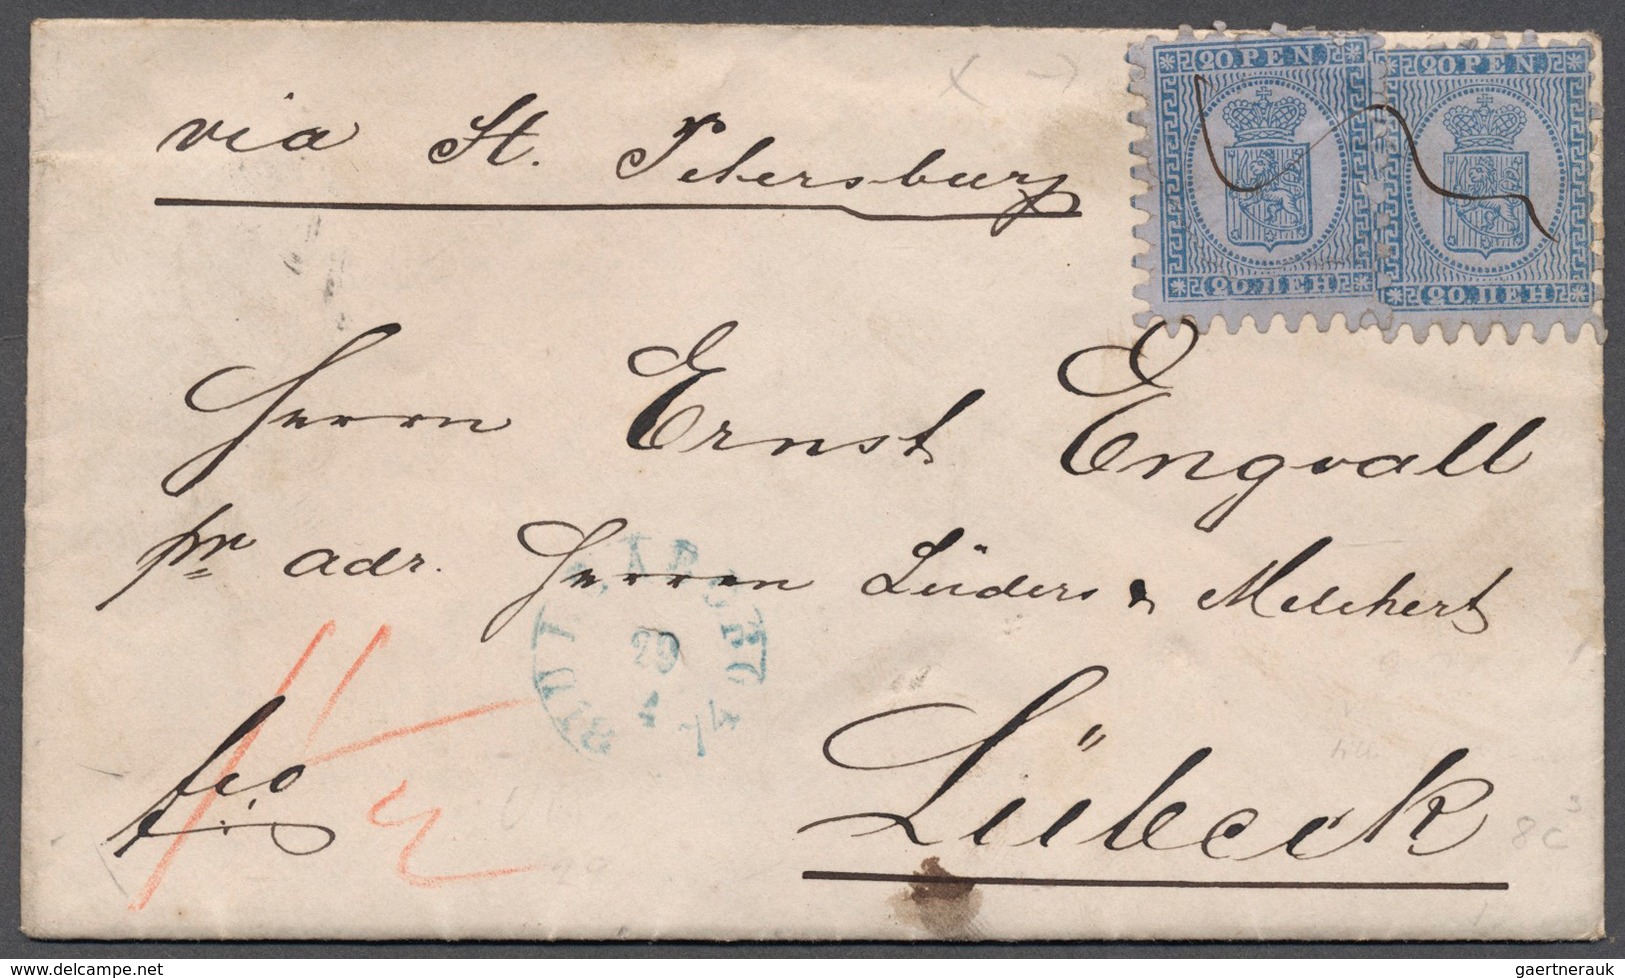 via St. Petersburg
20.PEN. 20.PEN.
20.ПЕН. 20.ПЕН.
Herrn Ernst Engvall
pr adr. Herren Lüders & Melchert
29
fco
Lübeck
8c
delcampe.net
gaertnerauk